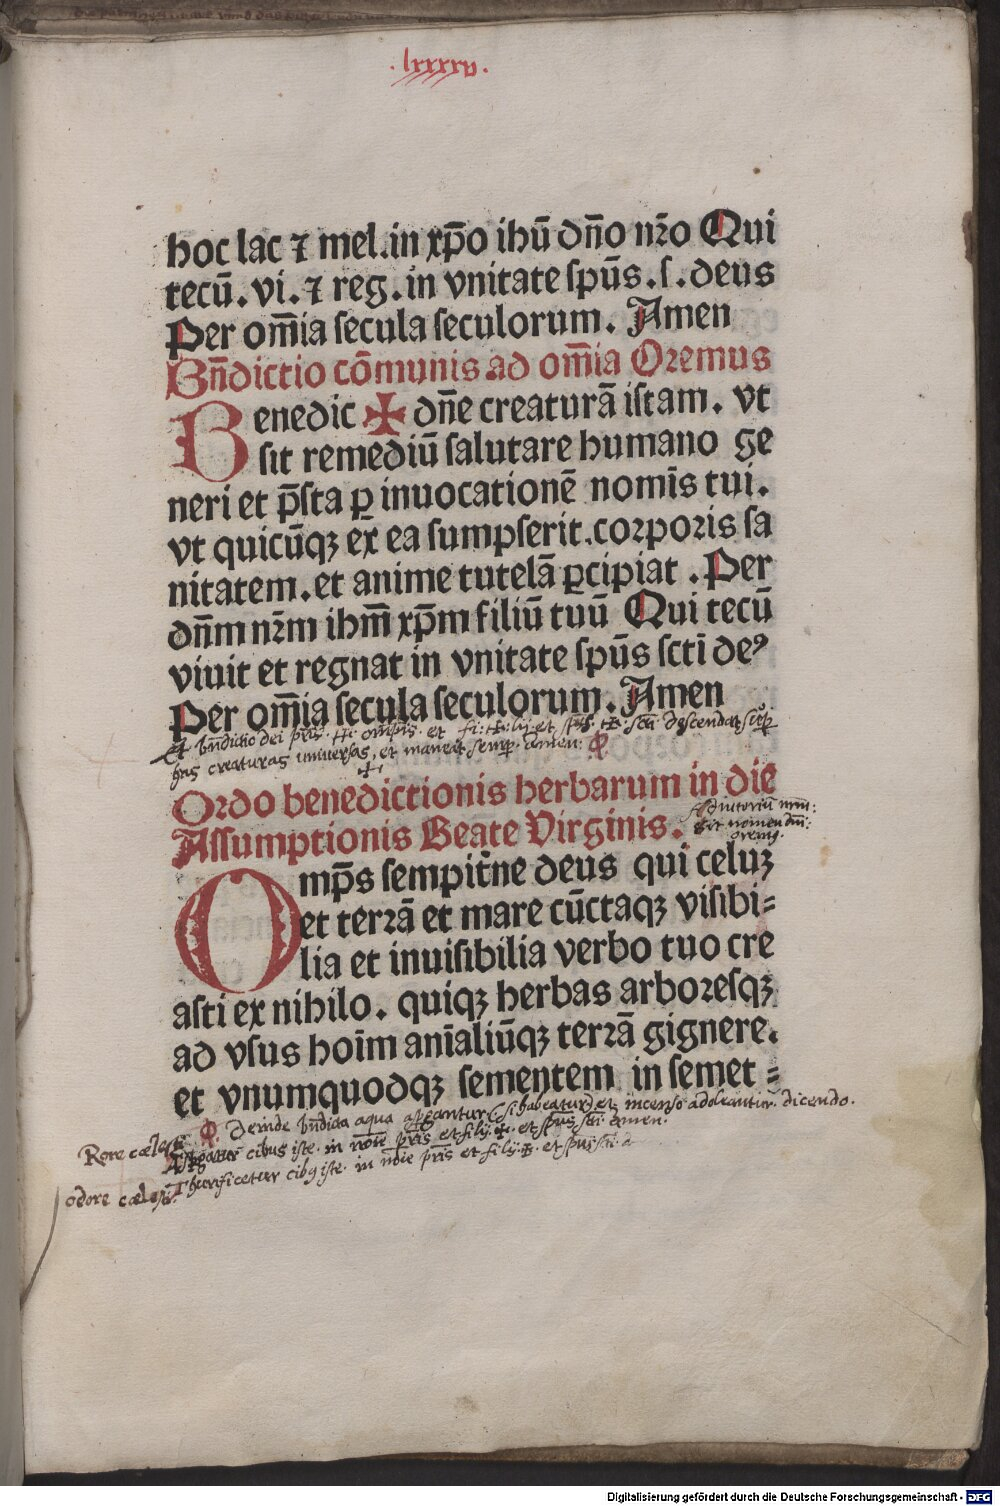 .lxxxxv.
hoc lac ⁊ mel.in xp̄o ihū dn̄o nr̄o Qui
tecū.vi.⁊ reg.in vnitate spūs.s.deus
Per om̄ia secula seculorum. Amen
Bn̄dictio cōmunis ad om̄ia Oremus
Benedic ✠ dn̄e creaturā istam. vt
sit remediū salutare humano ge
neri et p̄sta ꝑ inuocationē nomīs tui.
vt quicūqꝫ ex ea sumpserit.corporis sa
nitatem.et anime tutelā ꝑcipiat .Per
dn̄m nr̄m ihm̄ xp̄m filiū tuū Qui tecū
viuit et regnat in vnitate spūs sctī deꝰ
Per om̄ia secula seculorum. Amen
Et bn̄dictio dei pr̄is ✠ om̄pn̄s et fi ✠ lij et sp̄s ✠ sc̄ti descendat suꝑ
has creaturas universas, et maneat semꝑ. amen:
✠
Ordo benedictionis herbarum in die
Assumptionis Beate Virginis.
Adiutoriū nr̄m:
Sit nomen dn̄i:
oremꝰ.
Omp̄s sempit̄ne deus qui celuꝫ
et terrā et mare cūctaqꝫ visibi⸗
lia et inuisibilia verbo tuo cre
asti ex nihilo. quiqꝫ herbas arboresqꝫ
ad vsus hoīm anīaliūqꝫ terrā gignere.
et vnumquodqꝫ sementem in semet⸗
Deinde bn̄dicta aqua aspgantur (si habeatur) et incenso adoleantur. dicendo.
Rore cælesti Aspergatur cibus iste. in noīe pr̄is et filij ✠ et spūs sc̄ti amen.
odore cælesti Thurificetur cibꝰ iste. in noīe pr̄is et filij ✠ et spūs sc̄ti a
Digitalisierung gefördert durch die Deutsche Forschungsgemeinschaft - DFG